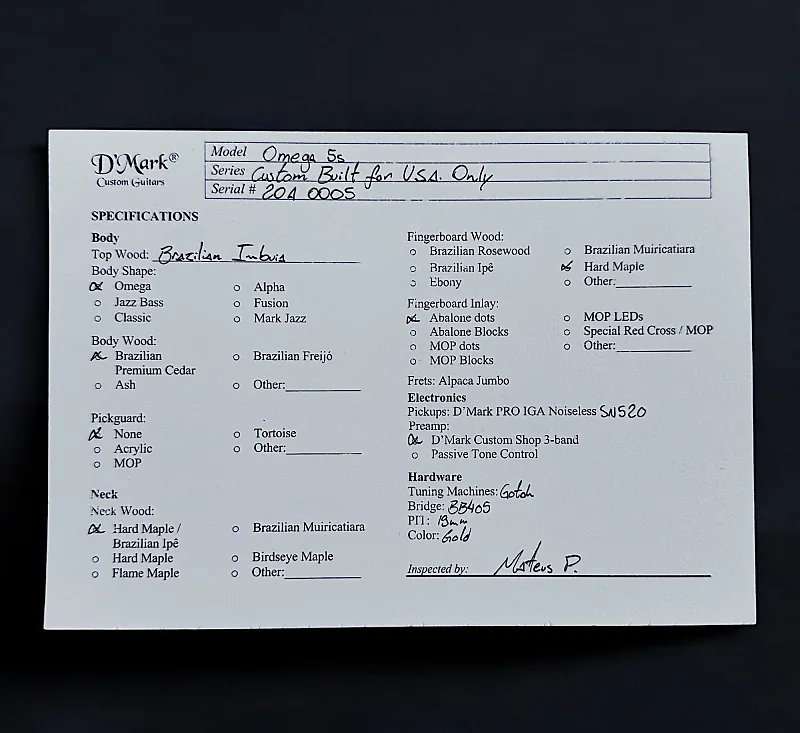 D'Mark®
Custom Guitars
Model Omega 5s
Series Custom Built for USA. Only
Serial # 204 0005
SPECIFICATIONS
Body
Top Wood: Brazilian Imbuia
Body Shape:
Omega
Alpha
Jazz Bass
Fusion
Classic
Mark Jazz
Body Wood:
Brazilian
Premium Cedar
Brazilian Freijó
Ash
Other:
Pickguard:
None
Tortoise
Acrylic
Other:
MOP
Neck
Neck Wood:
Hard Maple /
Brazilian Ipê
Brazilian Muiricatiara
Hard Maple
Birdseye Maple
Flame Maple
Other:
Fingerboard Wood:
Brazilian Rosewood
Brazilian Muiricatiara
Brazilian Ipê
Hard Maple
Ebony
Other:
Fingerboard Inlay:
Abalone dots
MOP LEDs
Abalone Blocks
Special Red Cross / MOP
MOP dots
Other:
MOP Blocks
Frets: Alpaca Jumbo
Electronics
Pickups: D'Mark PRO IGA Noiseless SN520
Preamp:
D'Mark Custom Shop 3-band
Passive Tone Control
Hardware
Tuning Machines: Gotoh
Bridge: BB405
PIT: 19mm
Color: Gold
Inspected by: Mateus P.